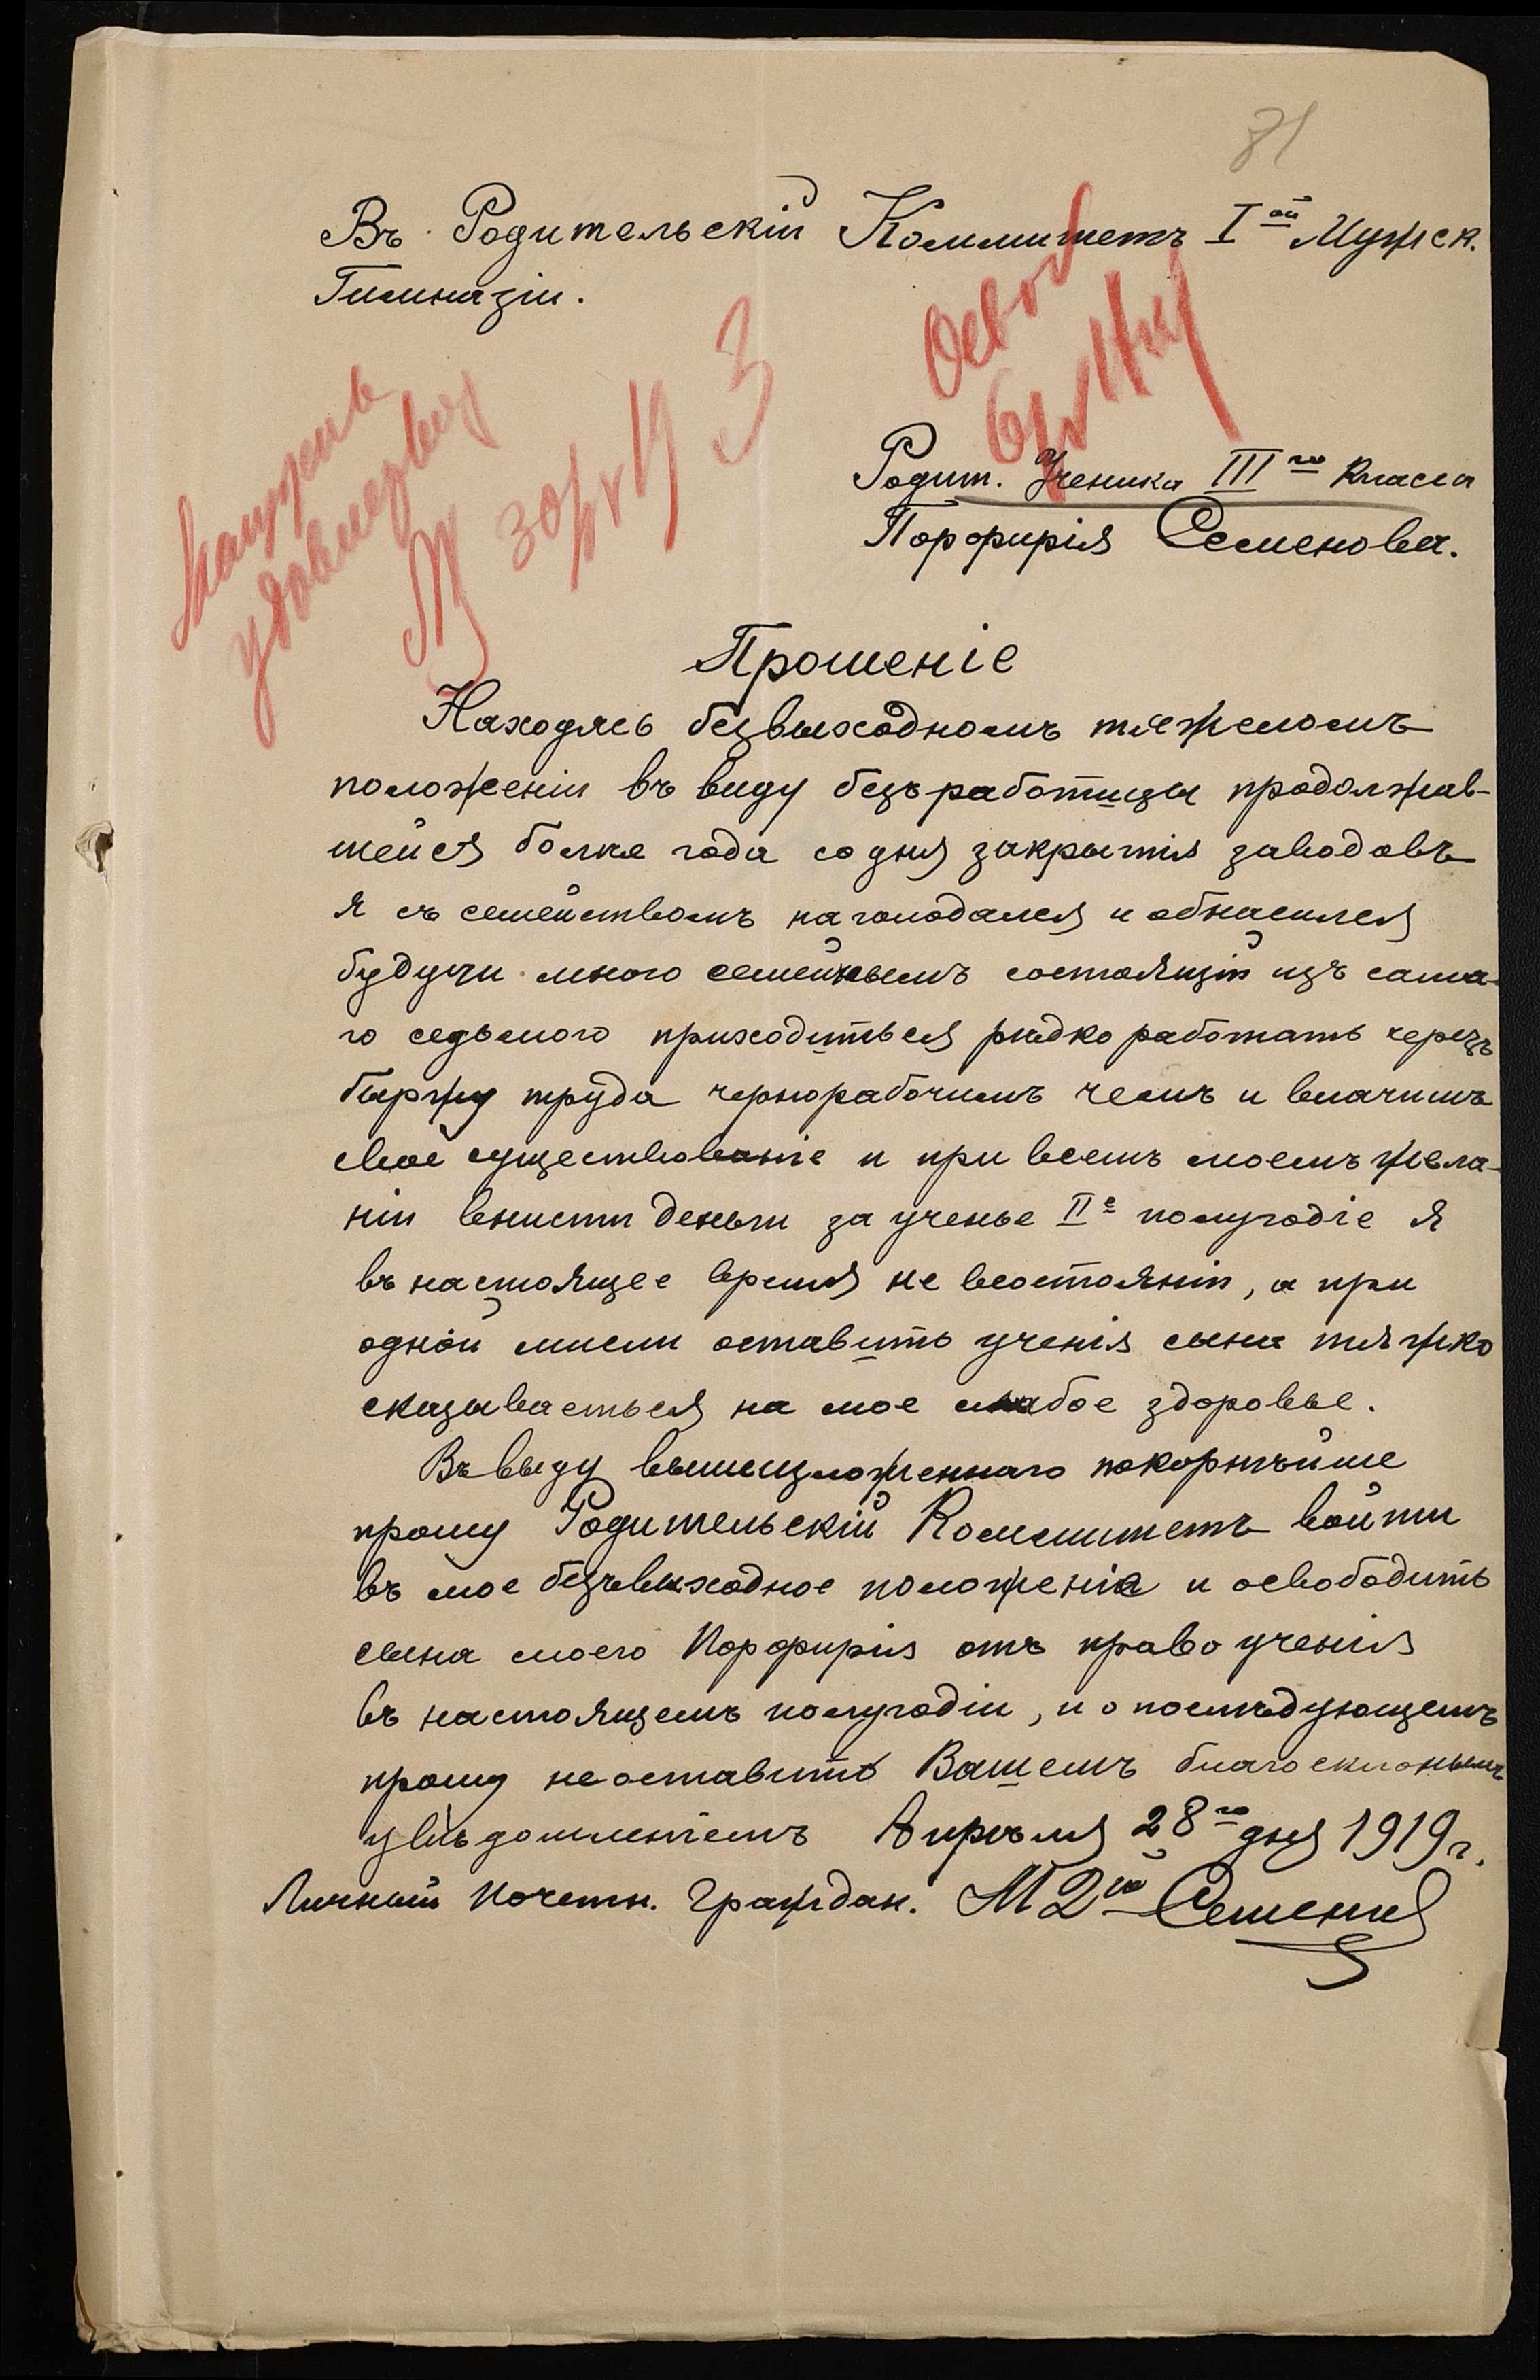 81
Въ Родительскій Коммитетъ I ой Мужск.
Гимназіи.
Освоб
6/V 19
3
30/IV 19
Родит. Ученика III го Класса
Порфирія Семенова.
Прошеніе
Находясь безвыходномъ тяжеломъ
положеніи въ виду безъработицы продолжав-
шейся более года со дня закрытія заводовъ
я съ семействомъ наголодался и обнасился
будучи много семейнымъ состоящій изъ сама-
го седьмого приходиться рѣдко работать черезъ
биржу труда чернорабочимъ чемъ и влачимъ
свое существованіе и при всемъ моемъ жела-
ніи внисти деньги за ученье II е полугодіе я
въ настоящее время не всостояніи, а при
одной мисли оставить ученія сына тяжко
сказываеться на мое слабое здоровье.
Въ виду вышеизложеннаго покорнѣйше
прошу Родительскій Коммитетъ войти
въ мое безъвыходное положеніе и освободить
сына моего Порфирія отъ право ученія
въ настоящемъ полугодіи, и о послѣдующемъ
прошу не оставить Вашемъ благосклонымъ
увѣдомленіемъ Апрѣля 28 го дня 1919 г.
Личный Почетн. Граждан. М Семеновъ